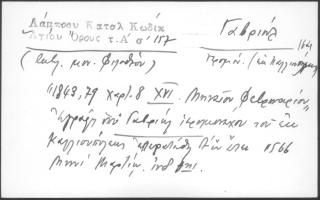 Λάμπρου Κατάλ Κώδικ Γαβριήλ
Ἁγίου Ὄρους τ.Α' σ' 157
(Κατ. μον. Φιλοθέου) Ἱερομόν. (ἐκ Καλλιουπόλεως
1843, 79 Χαρτ. 8 XVI. Μηναῖον Φεβρουαρίου,
Ἐγράφη ὑπὸ Γαβριὴλ ἱερομονάχου τοῦ ἐκ
Καλλιουπόλεως ἐν ἔτει 1566
Μηνὶ Μαρτίῳ, ἰνδ